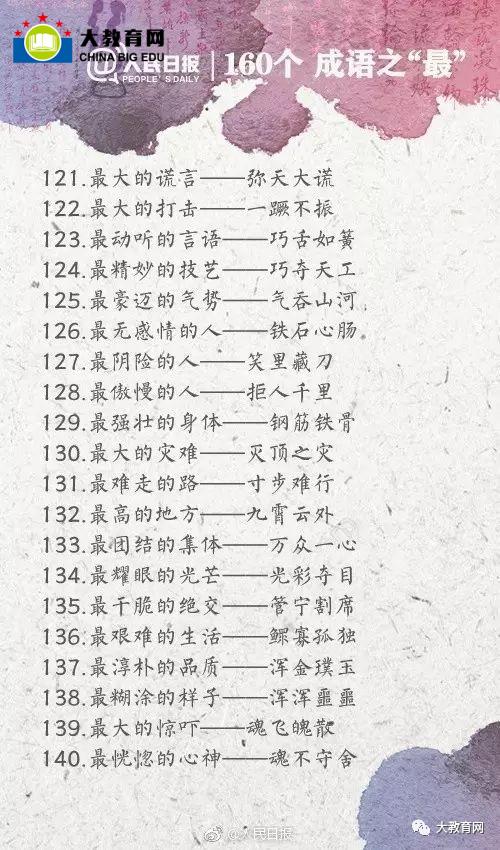 大教育网
CHINA BIG EDU
@人民日报
PEOPLE'S DAILY
160个 成语之“最”
121.最大的谎言——弥天大谎
122.最大的打击——一蹶不振
123.最动听的言语——巧舌如簧
124.最精妙的技艺——巧夺天工
125.最豪迈的气势——气吞山河
126.最无感情的人——铁石心肠
127.最阴险的人——笑里藏刀
128.最傲慢的人——拒人千里
129.最强壮的身体——钢筋铁骨
130.最大的灾难——灭顶之灾
131.最难走的路——寸步难行
132.最高的地方——九霄云外
133.最团结的集体——万众一心
134.最耀眼的光芒——光彩夺目
135.最干脆的绝交——管宁割席
136.最艰难的生活——鳏寡孤独
137.最淳朴的品质——浑金璞玉
138.最糊涂的样子——浑浑噩噩
139.最大的惊吓——魂飞魄散
140.最恍惚的心神——魂不守舍
@人民日报
大教育网